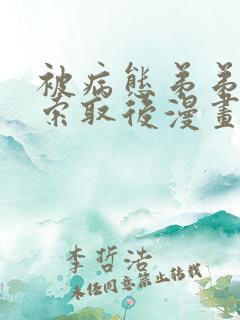 被病態弟弟
索取後漫畫
李哲浩
未经同意禁止转载